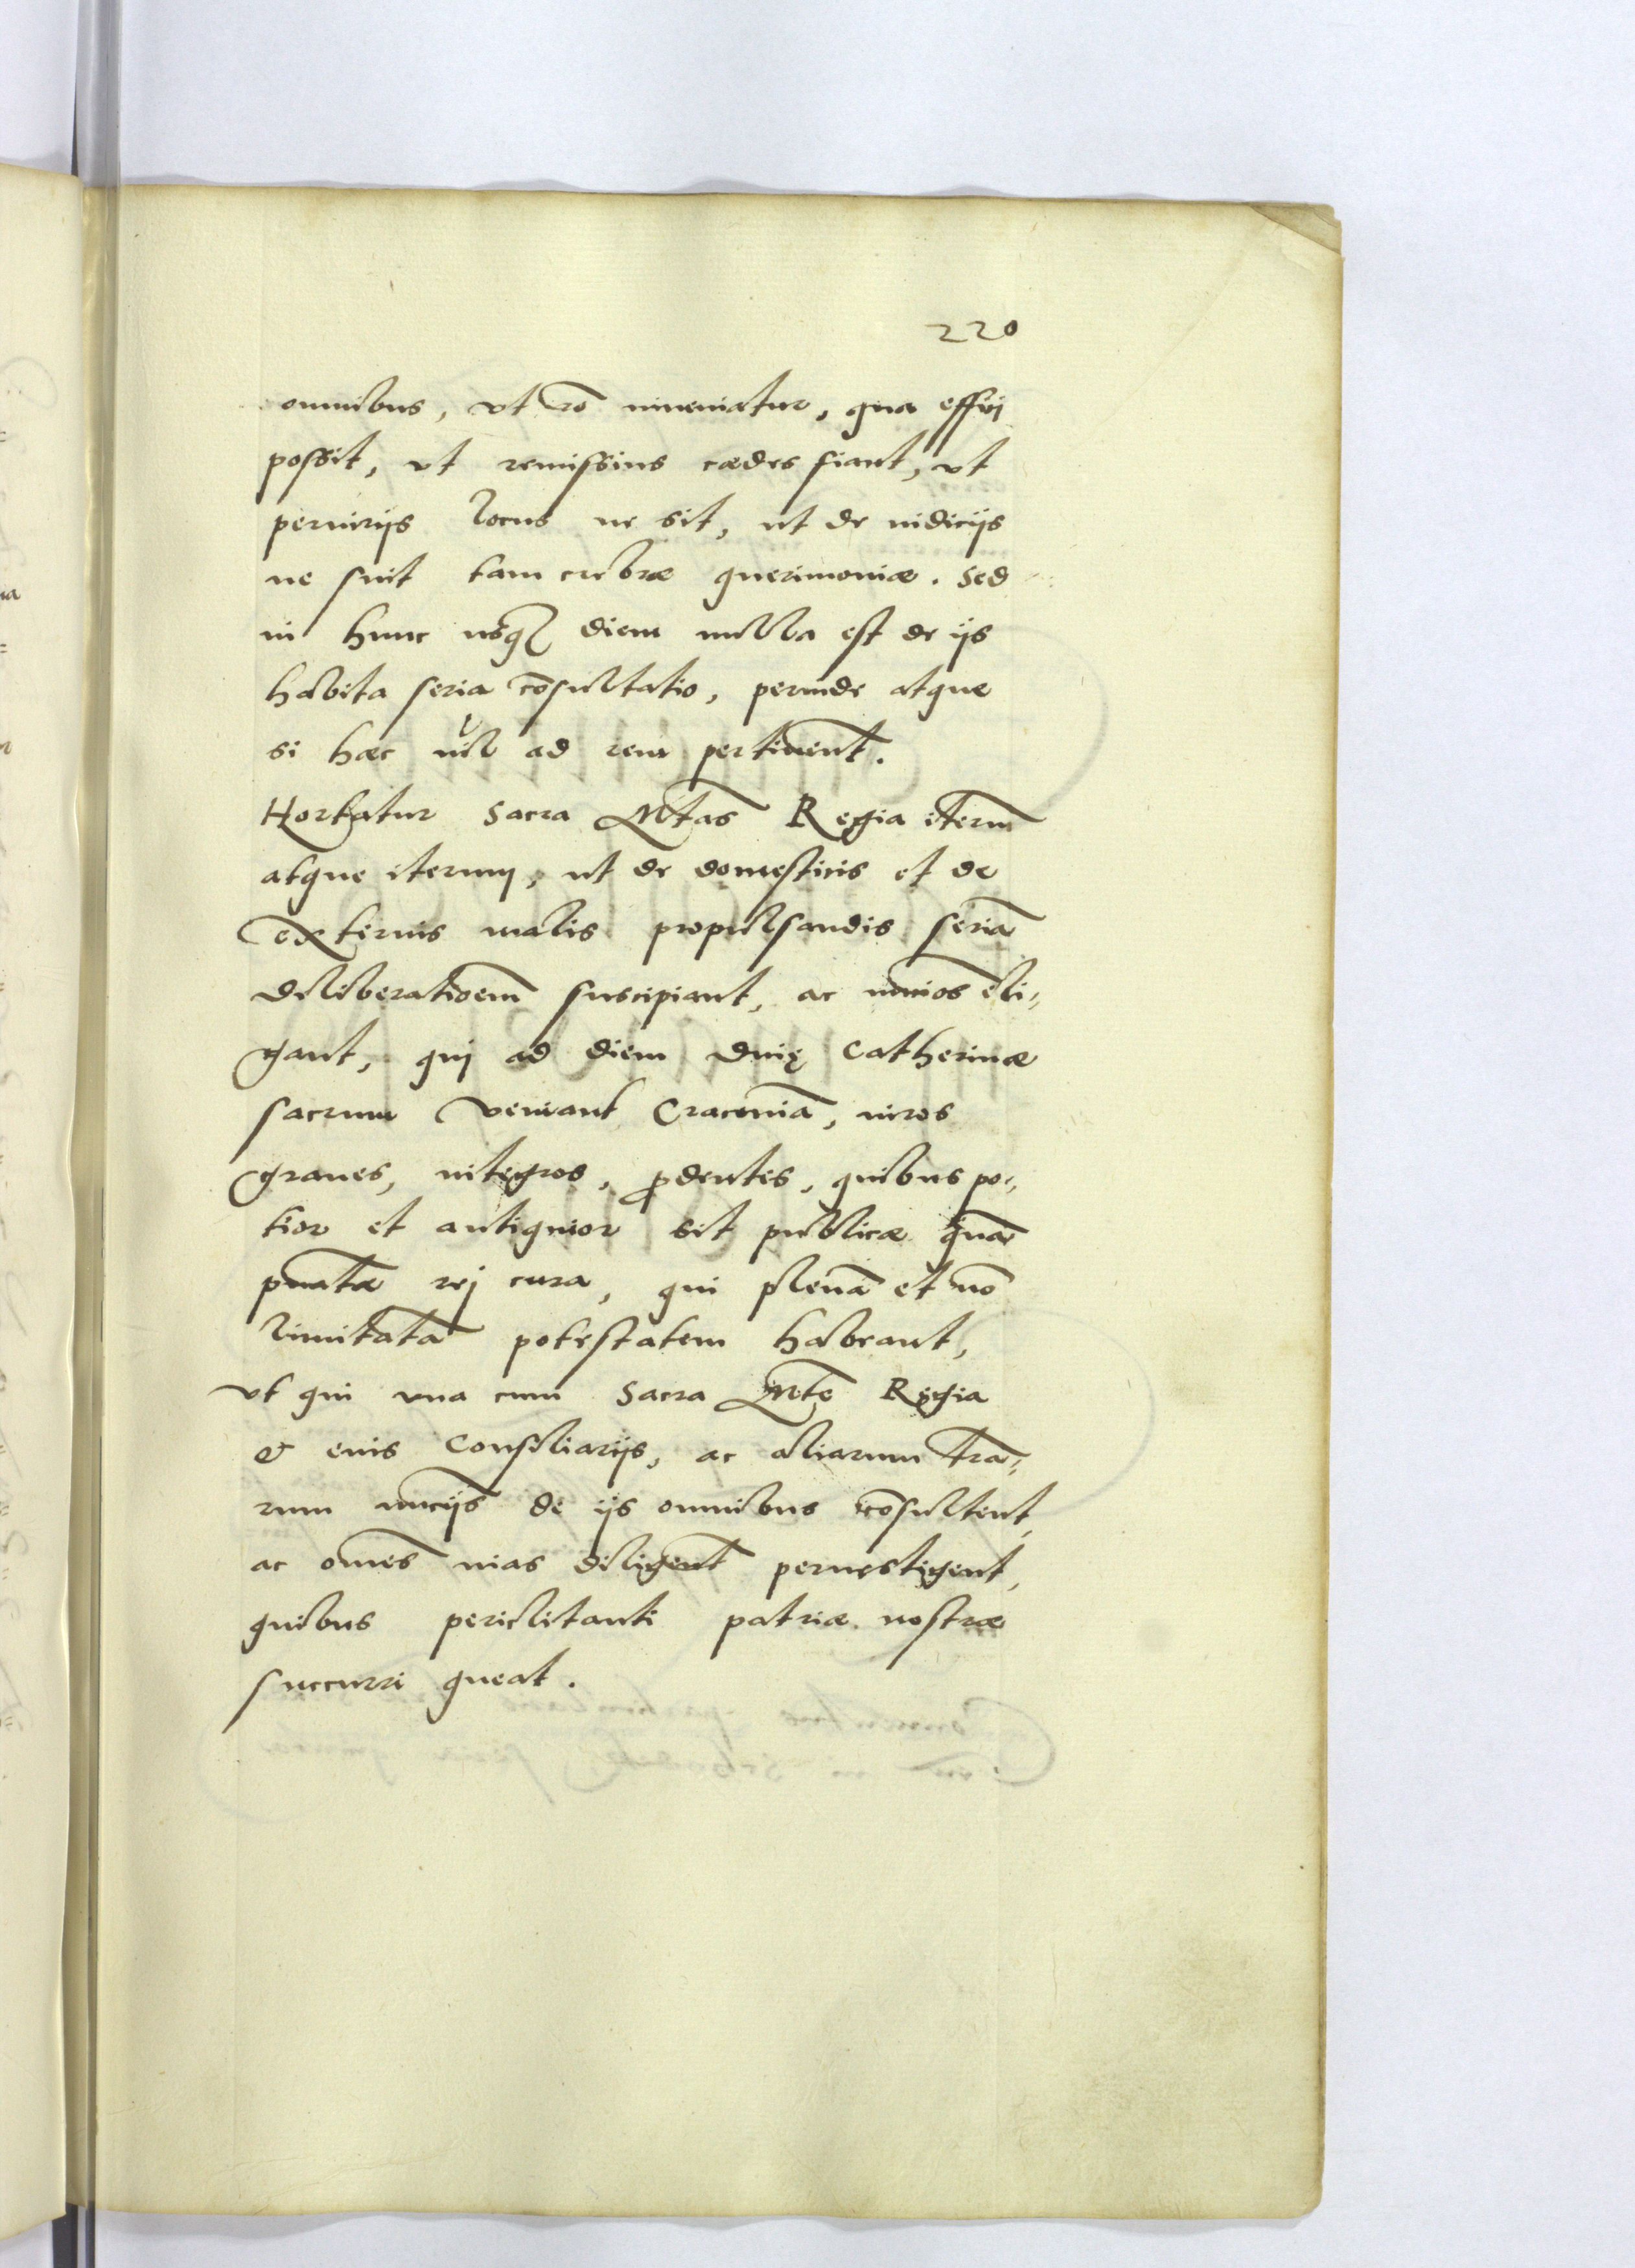 220
omnibus, vt rō inueniatur, qua effici
possit, vt remissius cædes fiant, vt
periurijs locus ne sit, ut de iudicijs
ne sint tam crebræ querimoniæ. Sed
in hunc usq₃ diem nulla est de ijs
habita seria cōsultatio, perinde atque
si hæc nil ad rem pertinent.
Hortatur Sacra Mtas Regia iterum
atque iterum, ut de domesticis et de
externis malis propulsandis seriā
deliberationem suscipiant, ac nuncios eli⸗
gant, qui ad diem Diuę Catherinæ
sacrum veniant Cracouiā, uiros
graues, integros, prudentes, quibus po⸗
tior et antiquior sit publicæ quā
priuatæ rej cura, qui plenā et nō
limitatā potestatem habeant,
vt qui vna cum Sacra Mte Regia
& eius Consiliarijs, ac aliarum trā⸗
rum nuncijs de ijs omnibus cōsultent,
ac omēs uias diligent peruestigent,
quibus periclitanti patriæ nostræ
succurri queat.